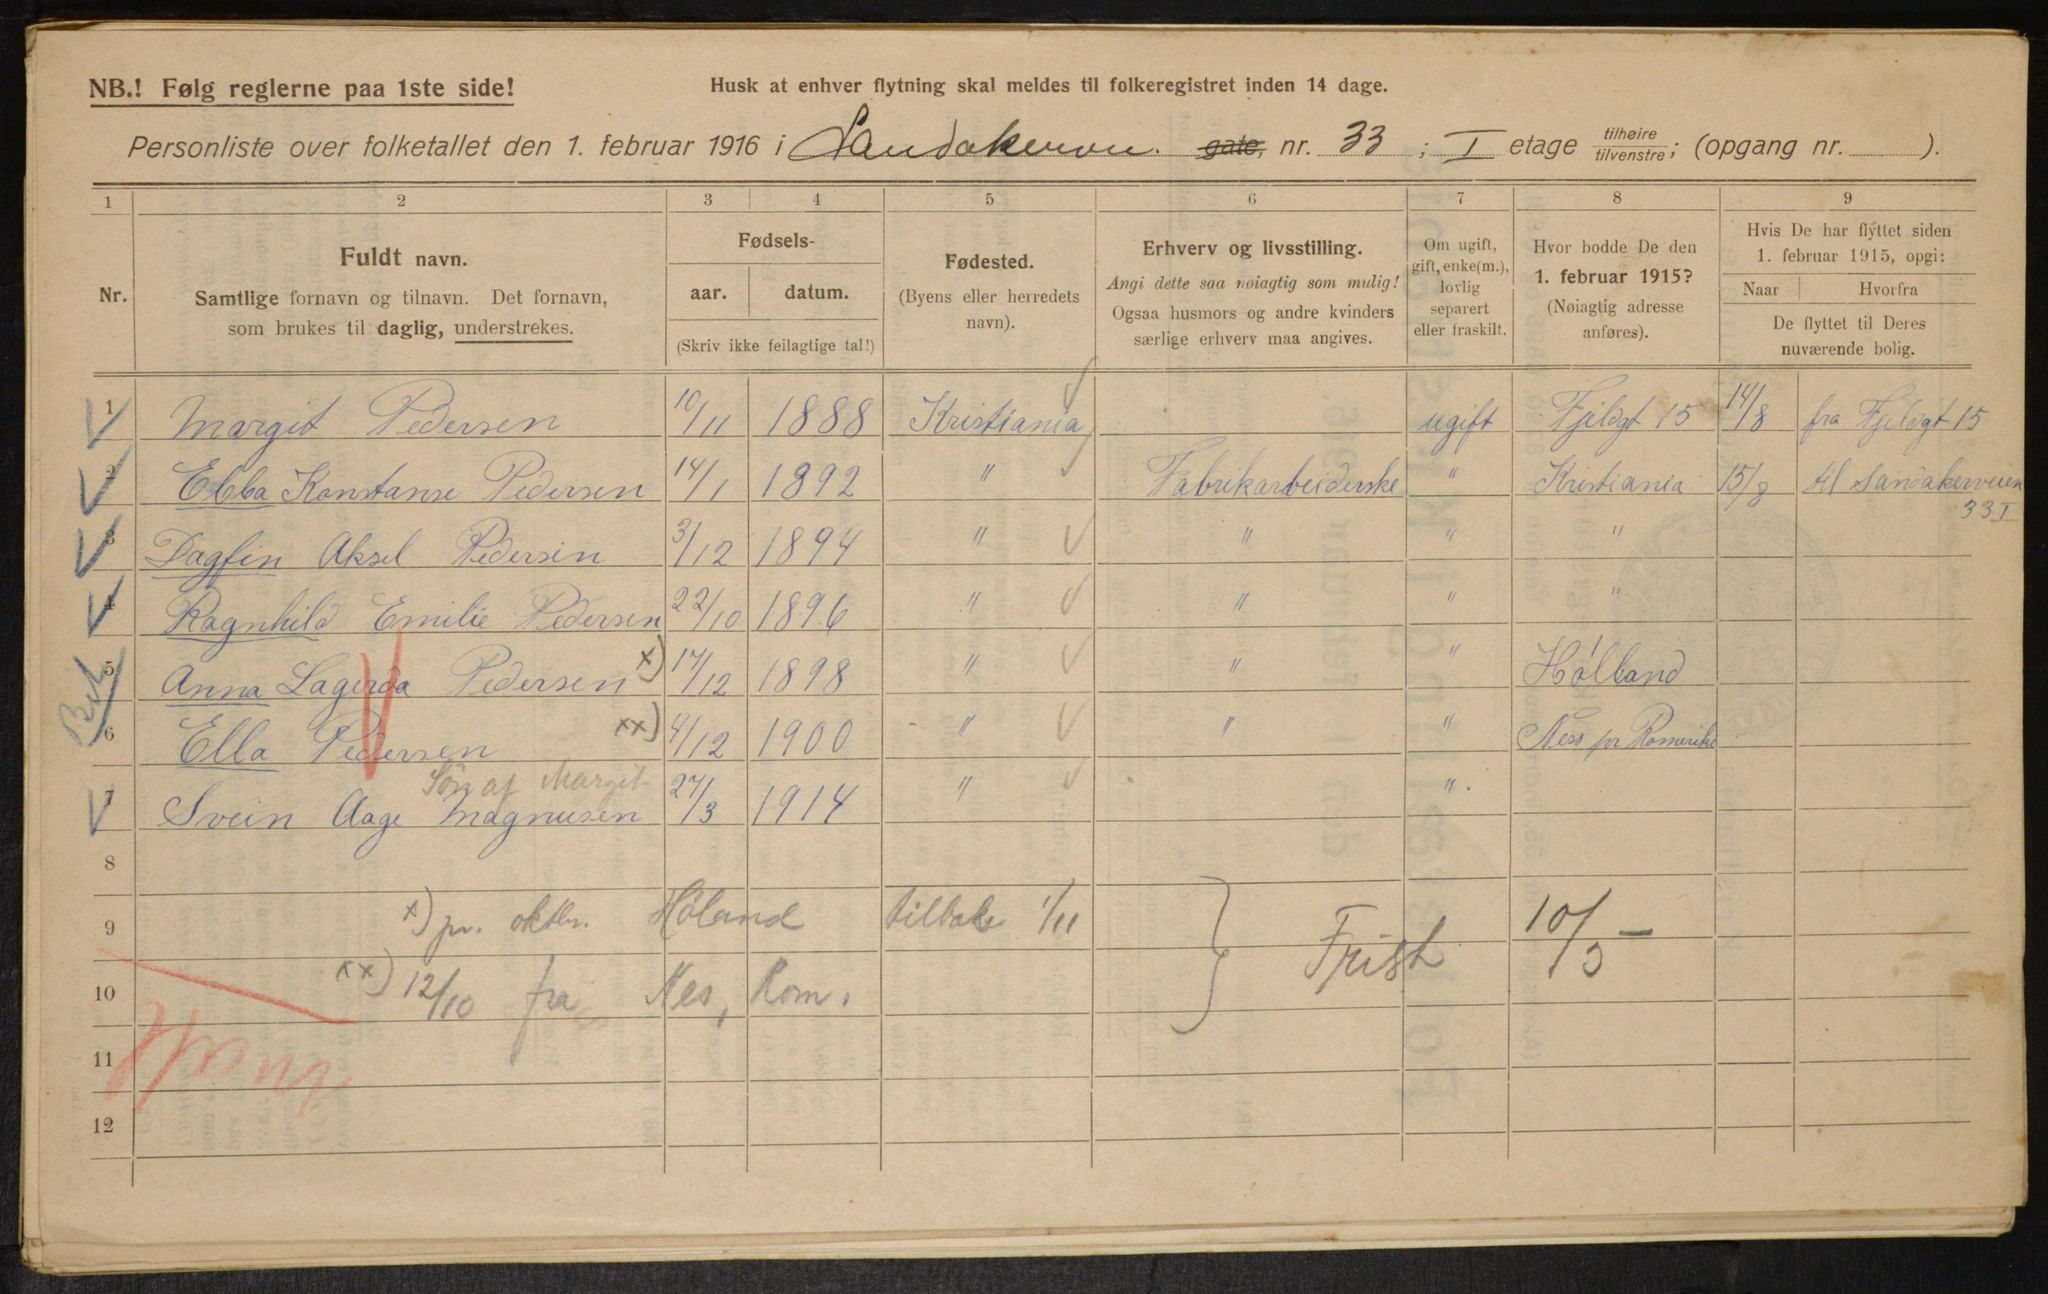 NB.! Følg reglerne paa 1ste side!
Husk at enhver flytning skal meldes til folkeregistret inden 14 dage.
Personliste over folketallet den 1. februar 1916 i Sandakervn. gate, nr. 33 ; I etage tilhøire tilvenstre; (opgang nr. ).
1 2 3 4 5 6 7 8 9
Nr.
Fuldt navn.
Samtlige fornavn og tilnavn. Det fornavn,
som brukes til daglig, understrekes.
Fødsels-
aar. datum.
(Skriv ikke feilagtige tal!)
Fødested.
(Byens eller herredets
navn).
Erhverv og livsstilling.
Angi dette saa nøiagtig som mulig!
Ogsaa husmors og andre kvinders
særlige erhverv maa angives.
Om ugift,
gift, enke(m.),
lovlig
separert
eller fraskilt.
Hvor bodde De den
1. februar 1915?
(Nøiagtig adresse
anføres).
Hvis De har flyttet siden
1. februar 1915, opgi:
Naar Hvorfra
De flyttet til Deres
nuværende bolig.
1 Margit Pedersen 10/11 1888 Kristiania ugift Fjeldgt 15 14/8 fra Fjeldgt 15
2 Ebba Konstanse Pedersen 14/1 1892 " Fabrikarbeiderske " Kristiania 15/8 til Sandakerveien
33 I
3 Dagfin Aksel Pedersen 3/12 1894 " " " "
4 Ragnhild Emilie Pedersen 22/10 1896 " " " "
5 Anna Lagerda Pedersen x) 17/12 1898 " " " Hölland
6 Ella Pedersen xx) 4/12 1900 " " " Ness pr Romerike
Sön af Margit
7 Svein Aage Magnusen 27/3 1914 " "
8
9 x) pr. oktbr. Höland tilbake 1/11 Frist 10/3 —
10 xx) 12/10 fra Nes, Rom.
11
12